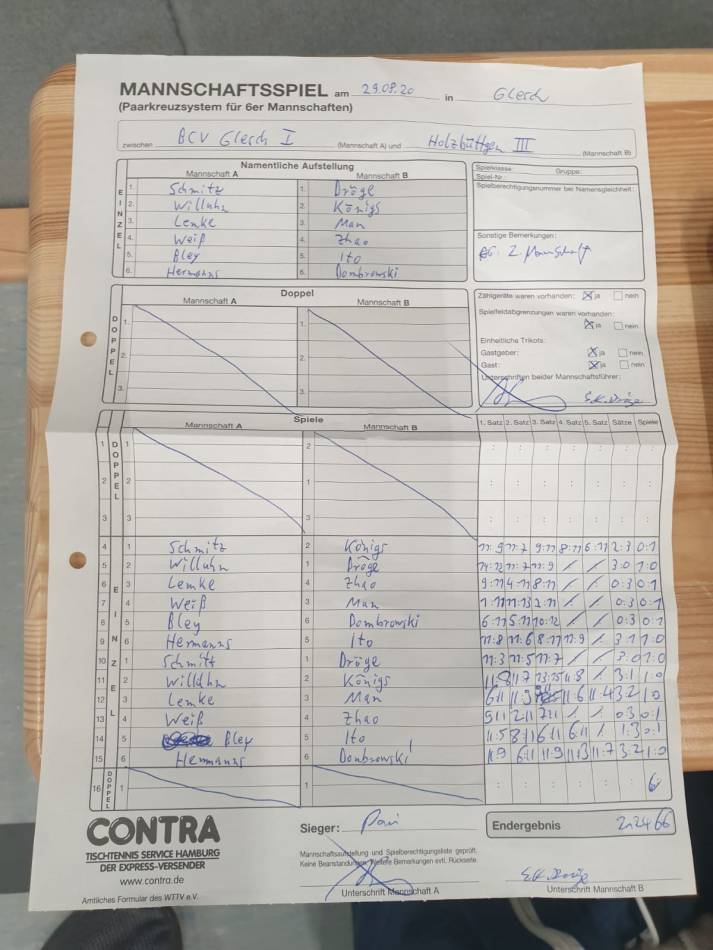 MANNSCHAFTSSPIEL am 29.08.20 in Glesch
(Paarkreuzsystem für 6er Mannschaften)
zwischen BCV Glesch I (Mannschaft A) und Holzbüttgen III (Mannschaft B)
Namentliche Aufstellung
Mannschaft A Mannschaft B
EINZEL
1. Schmitz 1. Dröge
2. Willuhn 2. Königs
3. Lemke 3. Man
4. Weiß 4. Zhao
5. Bley 5. Ito
6. Hermanns 6. Dombrowski
Spielklasse: Gruppe:
Spiel-Nr.:
Spielberechtigungsnummer bei Namensgleichheit:
Sonstige Bemerkungen:
2. Mannschaft
Doppel
Mannschaft A Mannschaft B
DOPPEL
1. 1.
2. 2.
3. 3.
Zählgeräte waren vorhanden: ja nein
Spielfeldabgrenzungen waren vorhanden:
ja nein
Einheitliche Trikots:
Gastgeber: ja nein
Gast: ja nein
Unterschriften beider Mannschaftsführer:
Spiele
Mannschaft A Mannschaft B 1. Satz 2. Satz 3. Satz 4. Satz 5. Satz Sätze Spiele
DOPPEL
1 1 2
2 2 1
3 3 3
EINZEL
4 1 Schmitz 2 Königs 11:9 11:7 9:11 8:11 6:11 2:3 0:1
5 2 Willuhn 1 Dröge 14:12 11:7 11:9 3:0 1:0
6 3 Lemke 4 Zhao 9:11 4:11 8:11 0:3 0:1
7 4 Weiß 3 Man 1:11 11:13 2:11 0:3 0:1
8 5 Bley 6 Dombrowski 6:11 5:11 10:12 0:3 0:1
9 6 Hermanns 5 Ito 11:8 11:6 8:11 11:9 3:1 1:0
10 1 Schmitz 1 Dröge 11:3 11:5 11:7 3:0 1:0
11 2 Willuhn 2 Königs 11:8 11:7 13:15 11:8 3:1 1:0
12 3 Lemke 3 Man 6:11 11:3 11:6 11:4 3:2 1:0
13 4 Weiß 4 Zhao 5:11 2:11 7:11 0:3 0:1
14 5 Bley 5 Ito 11:5 8:11 6:11 6:11 1:3 0:1
15 6 Hermanns 6 Dombrowski 11:9 6:11 11:9 11:13 11:7 3:2 1:0
DOPPEL
16 1 1
CONTRA
TISCHTENNIS SERVICE HAMBURG
DER EXPRESS-VERSENDER
www.contra.de
Amtliches Formular des WTTV e.V.
Sieger:
Endergebnis 21:24 6:6
Mannschaftsaufstellung und Spielberechtigungsliste geprüft.
Keine Beanstandungen. Weitere Bemerkungen evtl. Rückseite.
Unterschrift Mannschaft A Unterschrift Mannschaft B